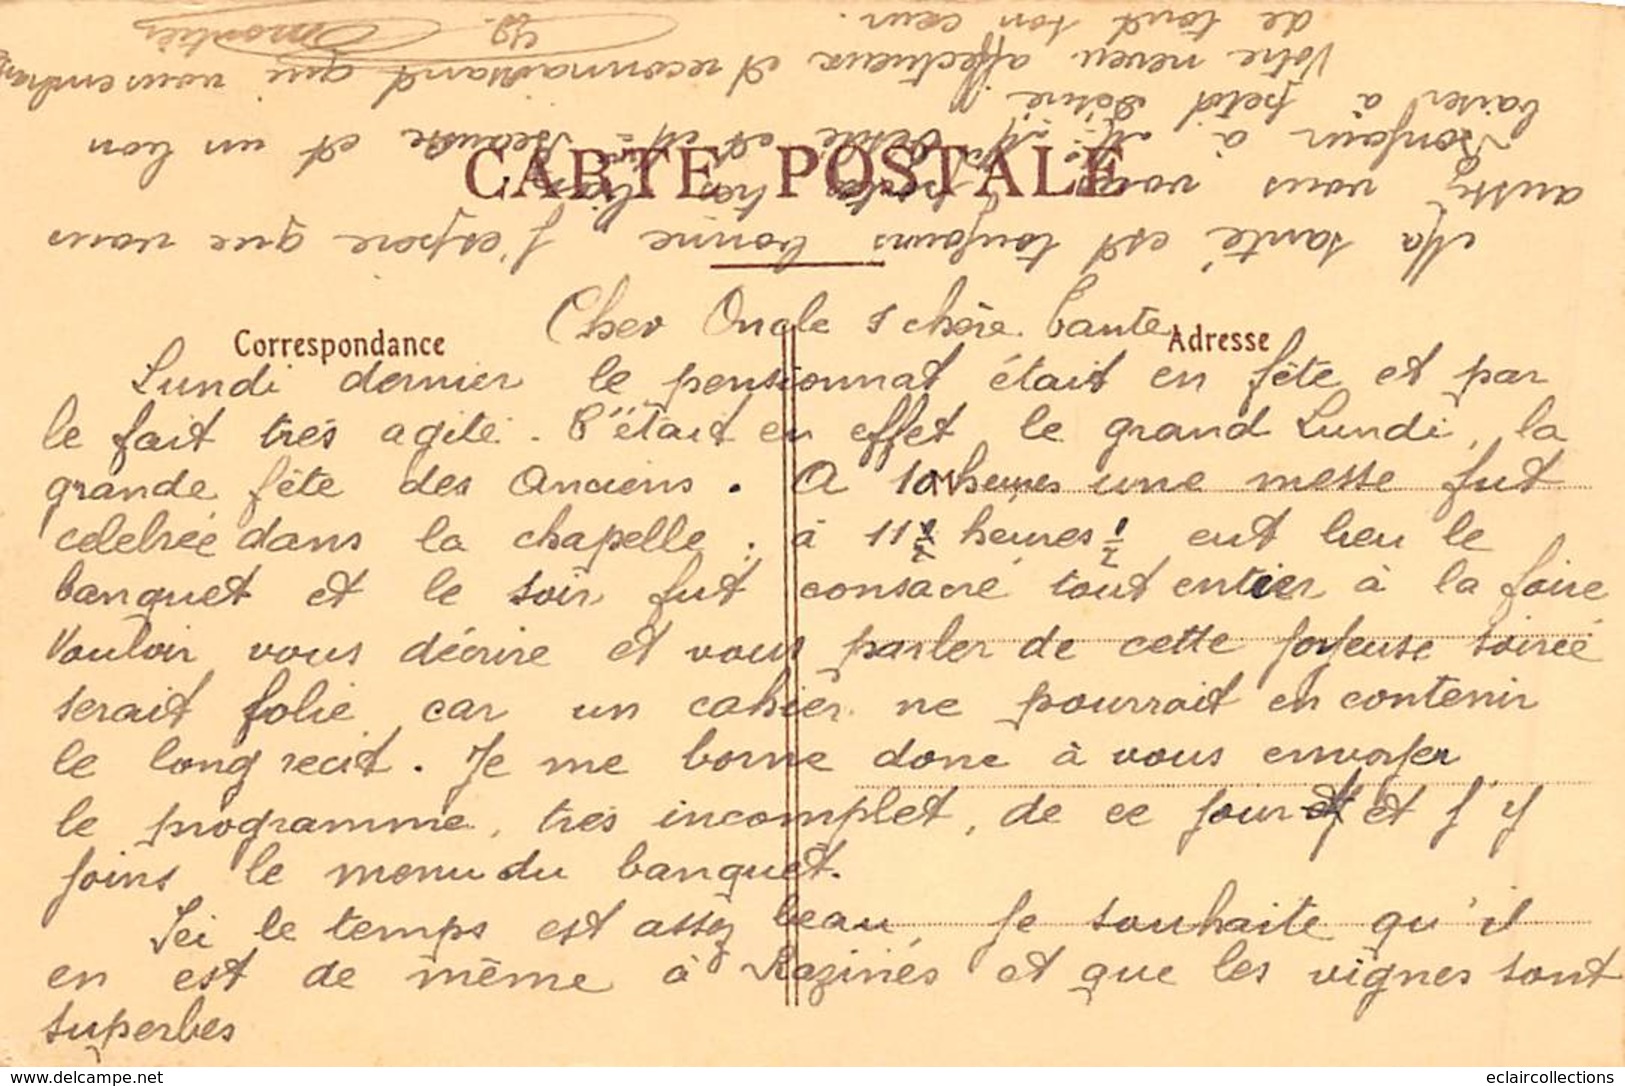 CARTE POSTALE
Correspondance
Adresse
Cher Oncle & chère Tante
Lundi dernier le pensionnat était en fête et par
le fait très agité. C'était en effet le grand Lundi, la
grande fête des Anciens. A 10 heures une messe fut
célebrée dans la chapelle ; à 11 heures ½ eut lieu le
banquet et le soir fut consacré tout entier à la foire
Vouloir vous décrire et vous parler de cette joyeuse soirée
serait folie car un cahier ne pourrait en contenir
le long recit. Je me borne donc à vous envoyer
le programme, très incomplet, de ce jour et j'y
joins le menu du banquet.
Ici le temps est assez beau Je souhaite qu'il
en est de même à Razinés et que les vignes sont
superbes
Ma santé est toujours bonne J'espère que vous
aussi vous vous portez très bien
Bonjour à et un bon
baiser à petit
Votre neveu affectueux et reconnaissant qui vous embrasse
de tout son cœur.
delcampe.net
eclaircollections